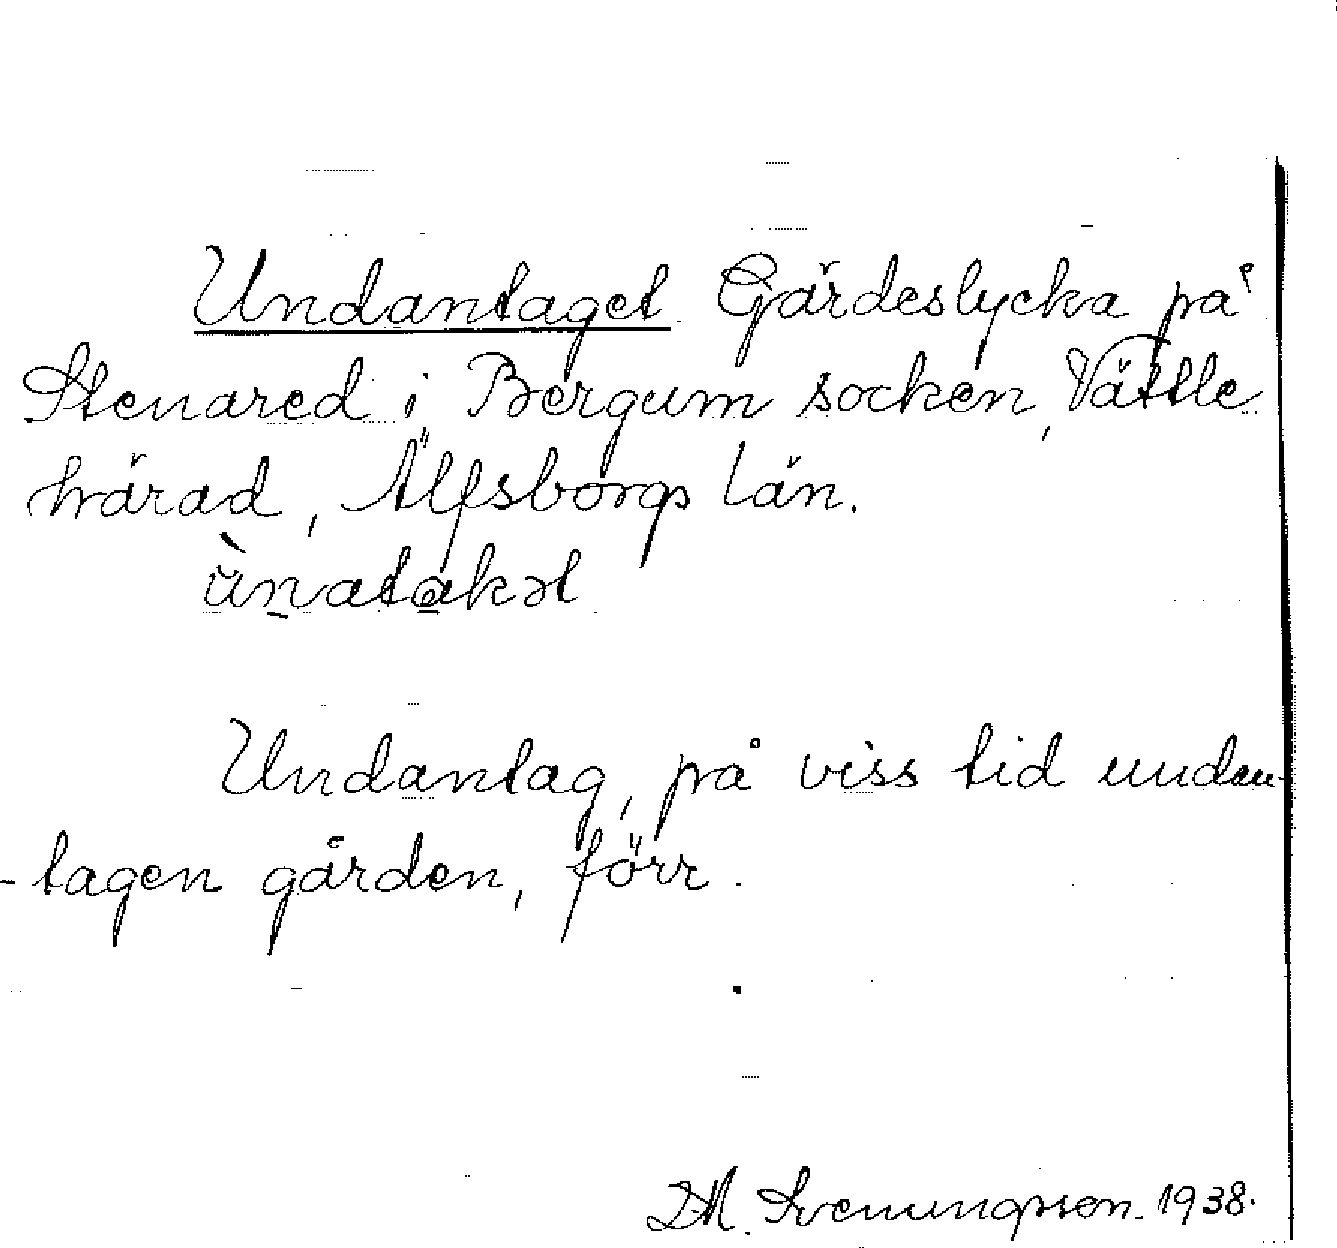 Undantaget Gärdeslycka på
Stenared i Bergum socken, Vättle
härad, Älfsborgs län.
ùnatakət
Undantag, på viss tid undan-
-tagen gården, förr.
Svenungsson. 1938.